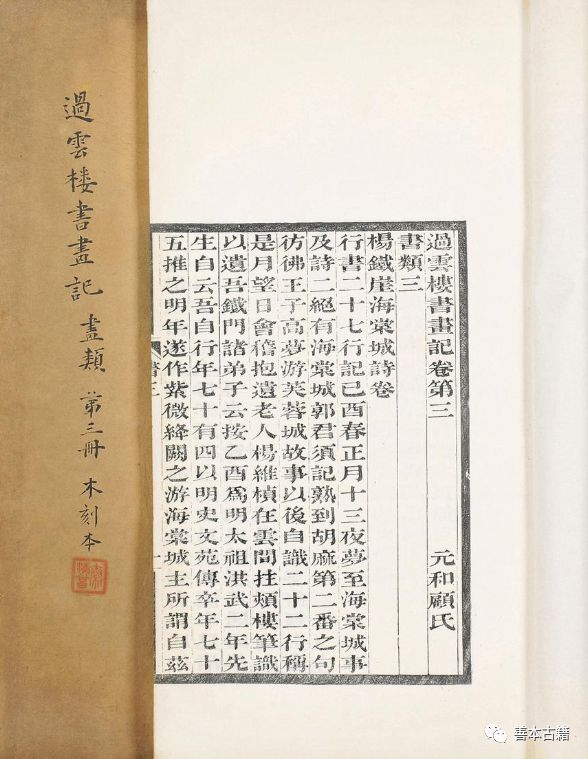 過雲樓書畫記卷第三　元和顧氏
書類三
楊鐵崖海棠城詩卷
行書二十七行記已酉春正月十三夜夢至海棠城事
及詩二絕有海棠城郭君須記熟到胡麻第二番之句
彷彿王子高夢游芙蓉城故事以後自識二十二行稱
是月望日會稽抱遺老人楊維楨在雲間拄頰樓筆識
以遺吾鐵門諸弟子云按乙酉爲明太祖洪武二年先
生自云吾自行年七十有四以明史文苑傳卒年七十
五推之明年遂作紫微絳闕之游海棠城主所謂自茲
過雲楼書畫記 畫類 苐三冊 木刻本
善本古籍